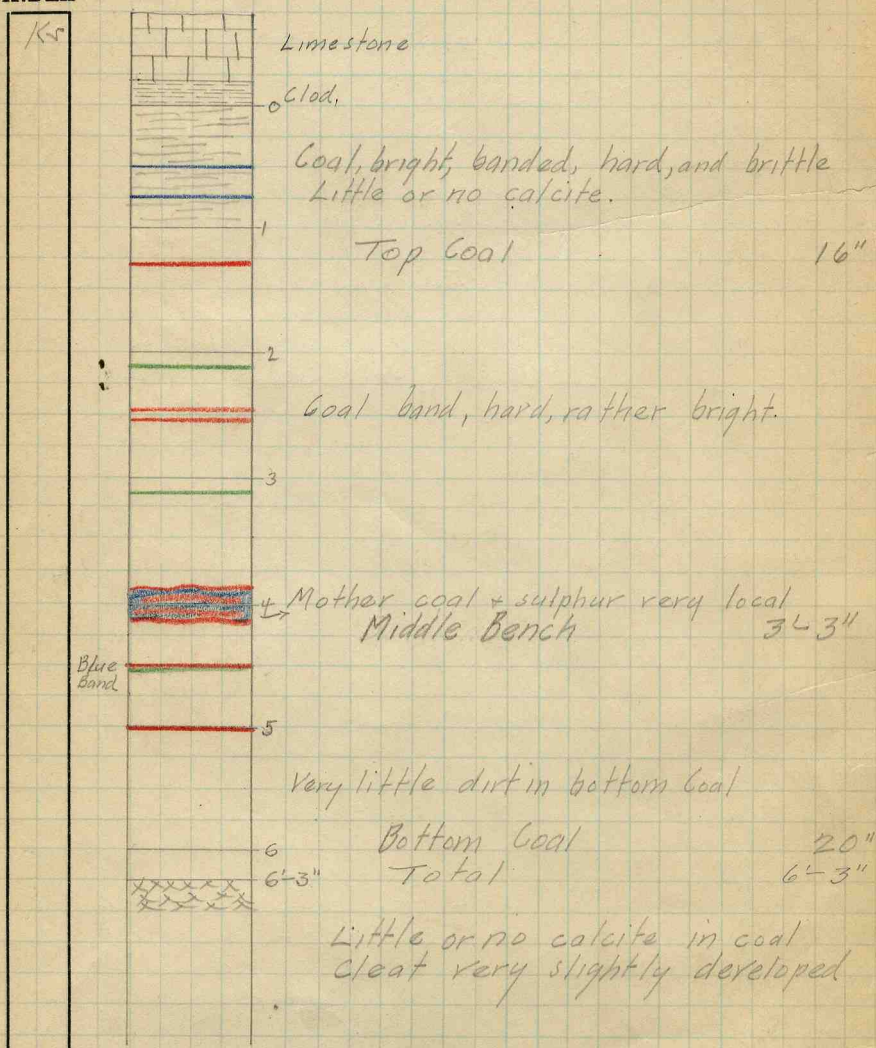 Kr
Limestone
0 Clod.
Coal, bright, banded, hard, and brittle
Little or no calcite.
1
Top Coal 16"
2
Coal band, hard, rather bright.
3
4 Mother coal + sulphur very local
Middle Bench 3'-3"
Blue
Band
5
Very little dirt in bottom Coal
Bottom Coal 20"
6
6'-3" Total 6'-3"
Little or no calcite in coal
Cleat very slightly developed